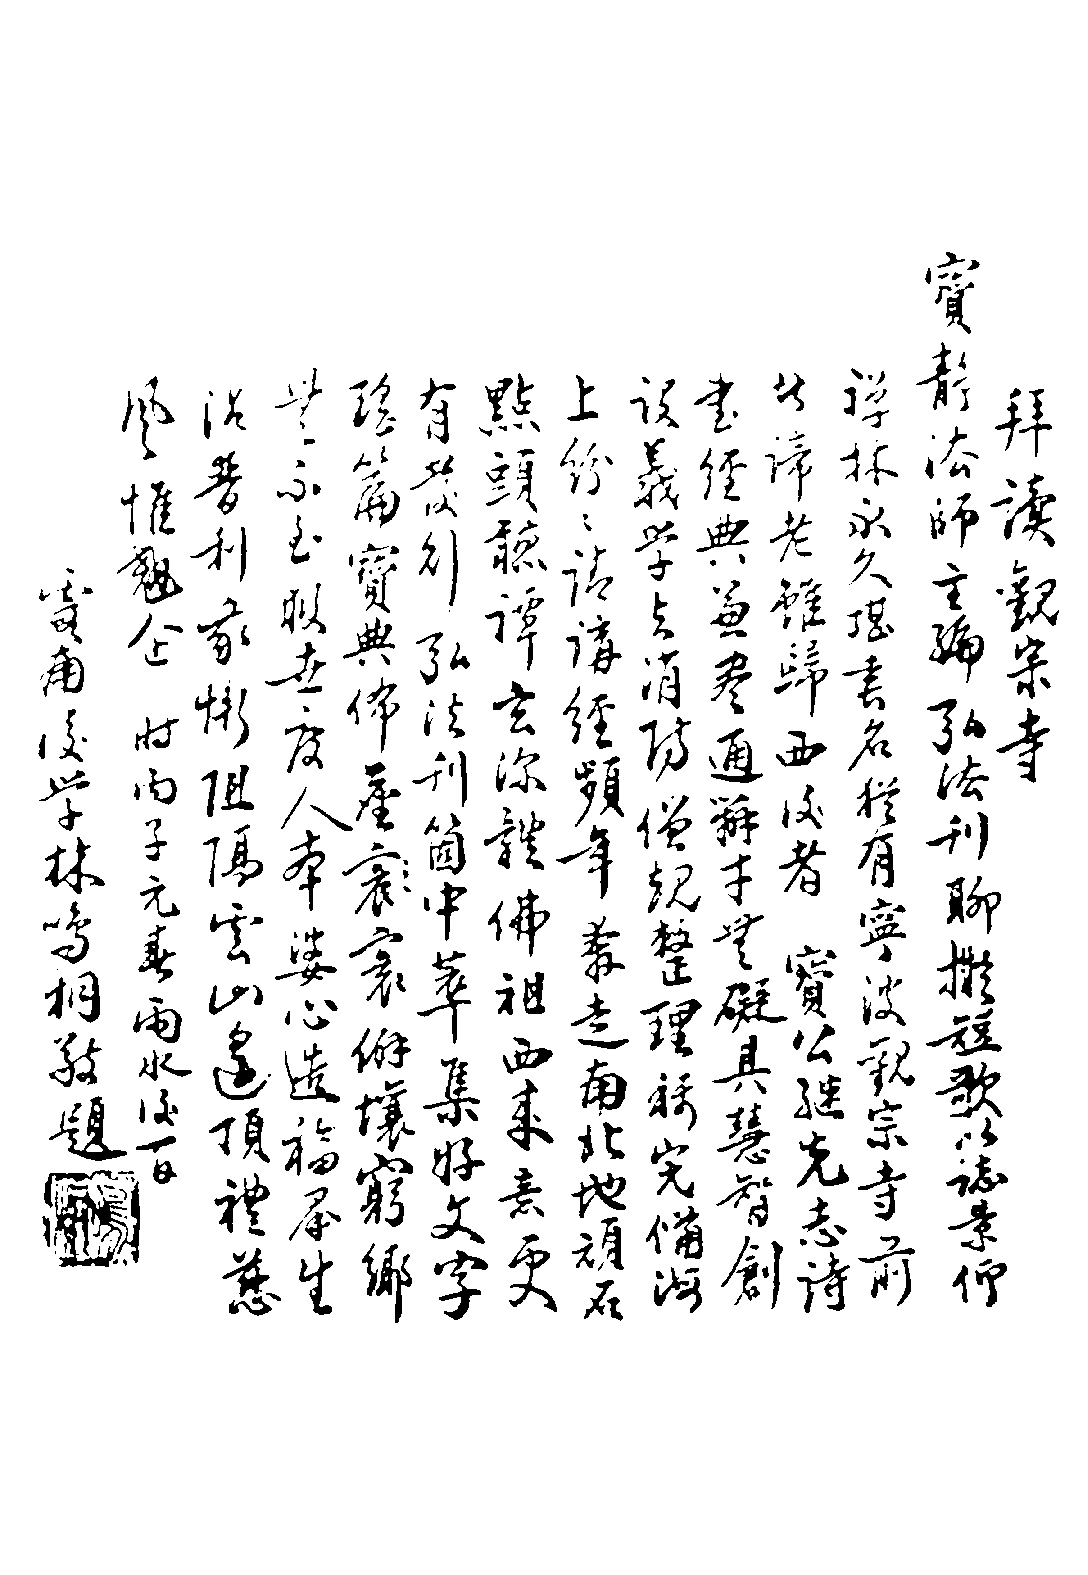 拜讀觀宗寺
寶靜法師主編弘法刊聊撰短歌以誌景仰
禪林永久堪書名猶有寧波觀宗寺前
者諦老雖歸西後者寶公繼先志詩
書經典兼盡通辯才無礙具慧智創
設義學與消防僧規整理稱完備海
上紛紛請講經頻年奔走南北地頑石
點頭聽譚玄深談佛祖西來意更
有發行弘法刊箇中萃集好文字
瑤篇寶典佈塵寰寰僻壤窮鄉
無不至救世度人本婆心造福羣生
沾普利我慚阻隔雲山遙頂禮慈
風惟翹企 時丙子元春雨水後一日
雲南後學林鳴桐敬題